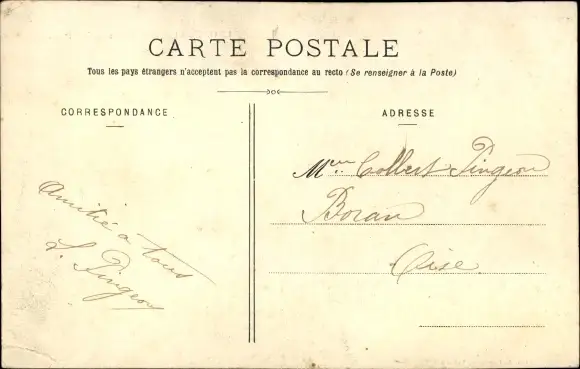 CARTE POSTALE
Tous les pays étrangers n'acceptent pas la correspondance au recto (Se renseigner à la Poste)
CORRESPONDANCE
Amitié à tous
L. Pingeon
ADRESSE
Collect Pingeon
Boran
Oise.